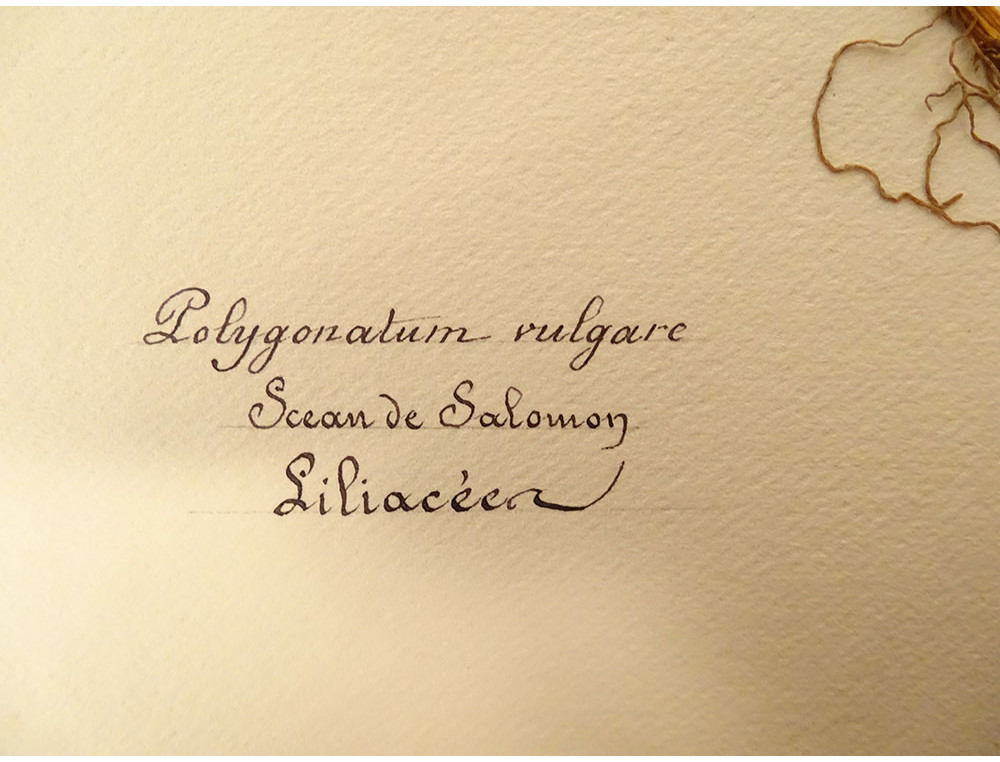 Polygonatum vulgare
Sceau de Salomon
Liliacées